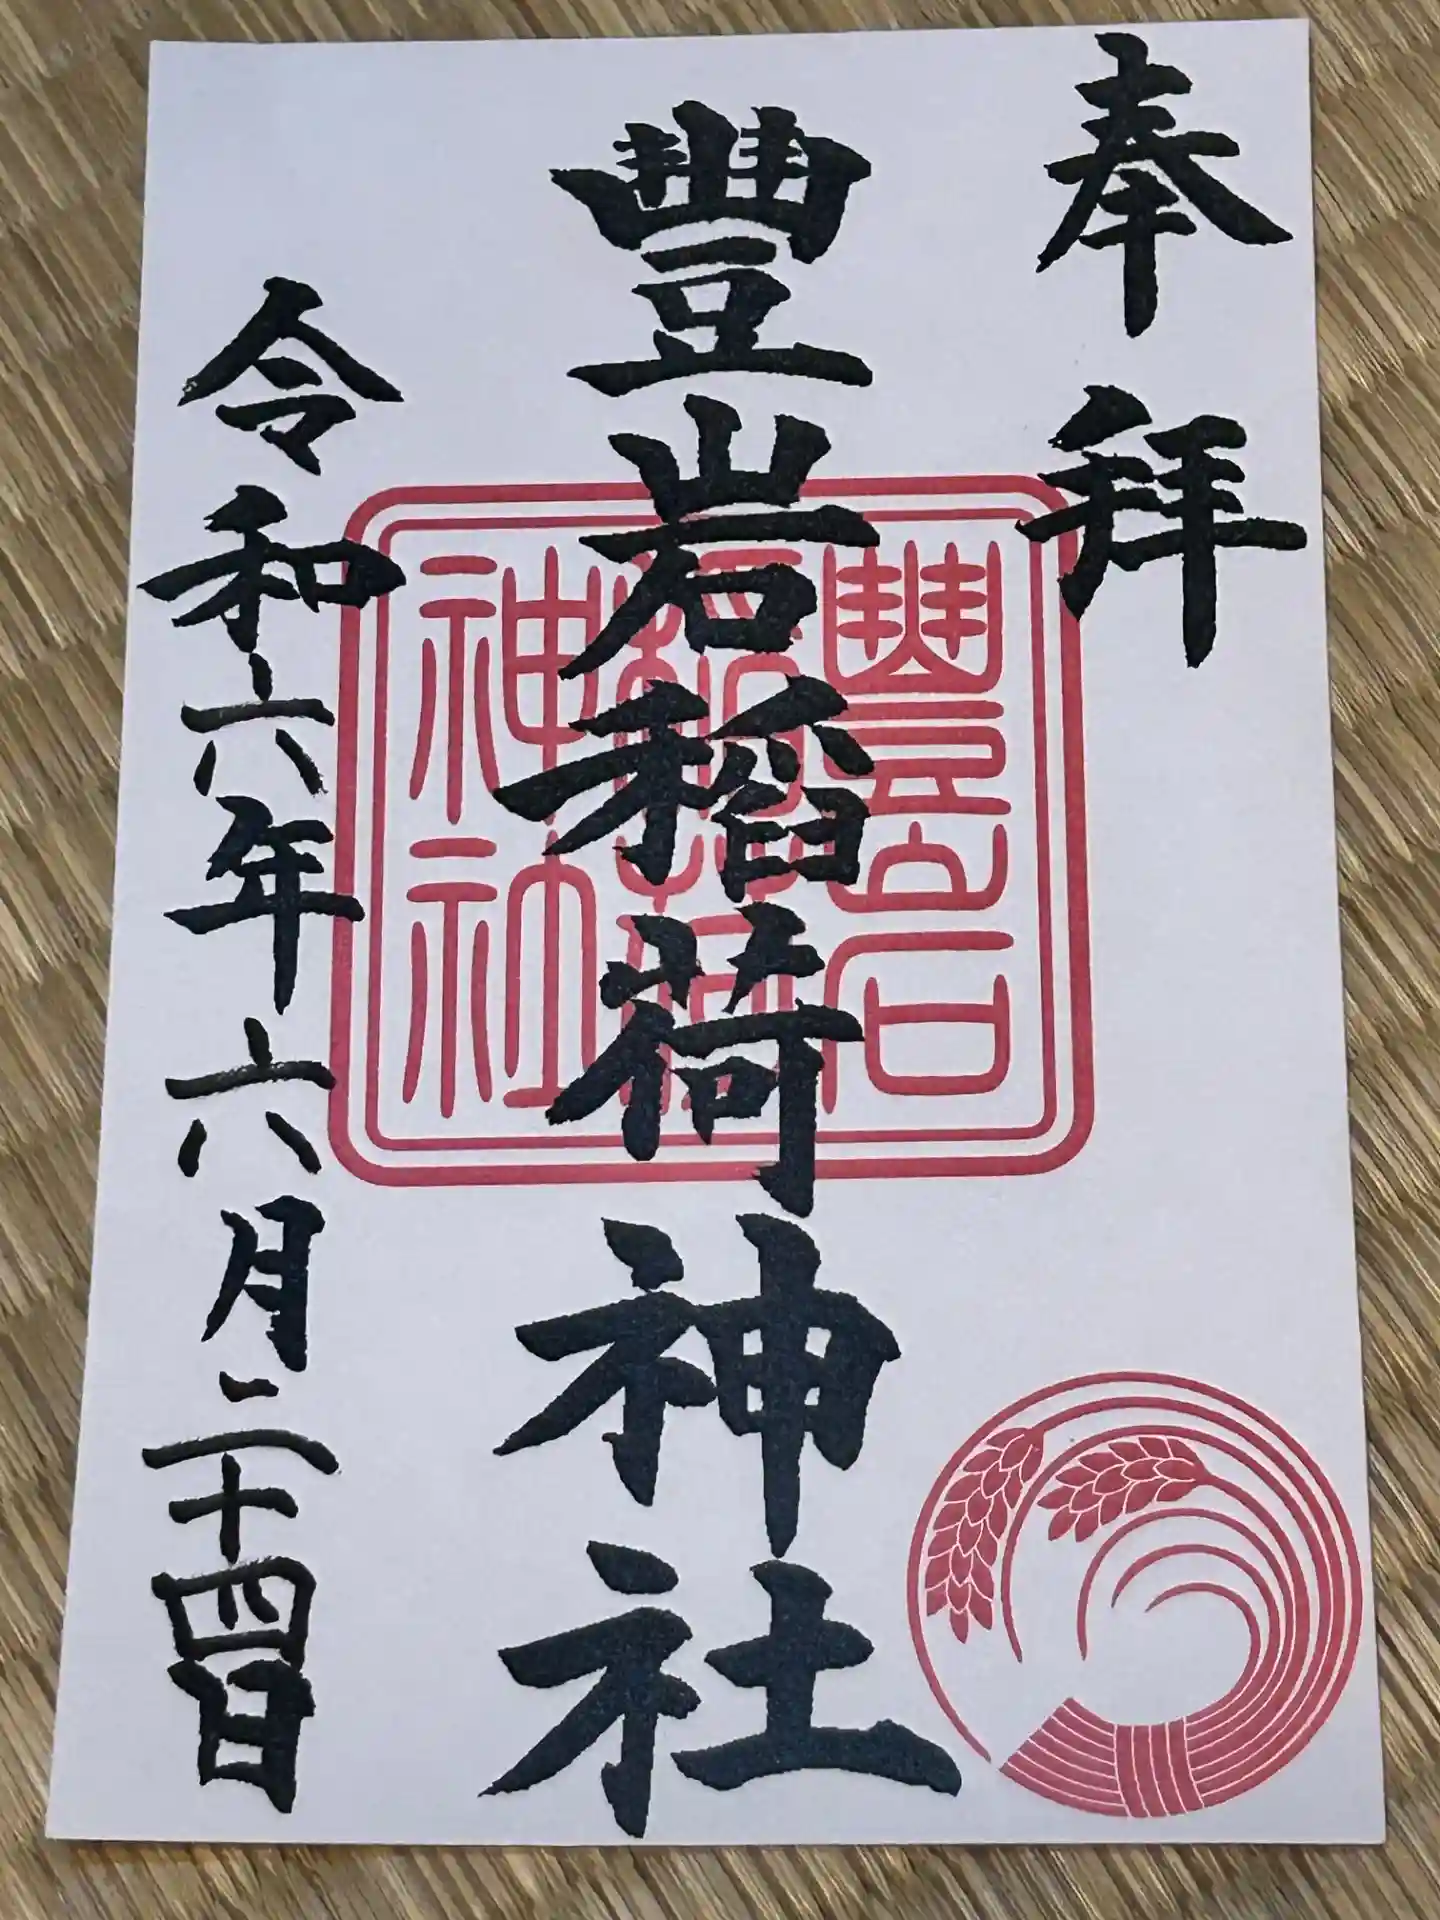 奉拝
豐岩稲荷神社
豐岩稲荷神社
令和六年六月二十四日